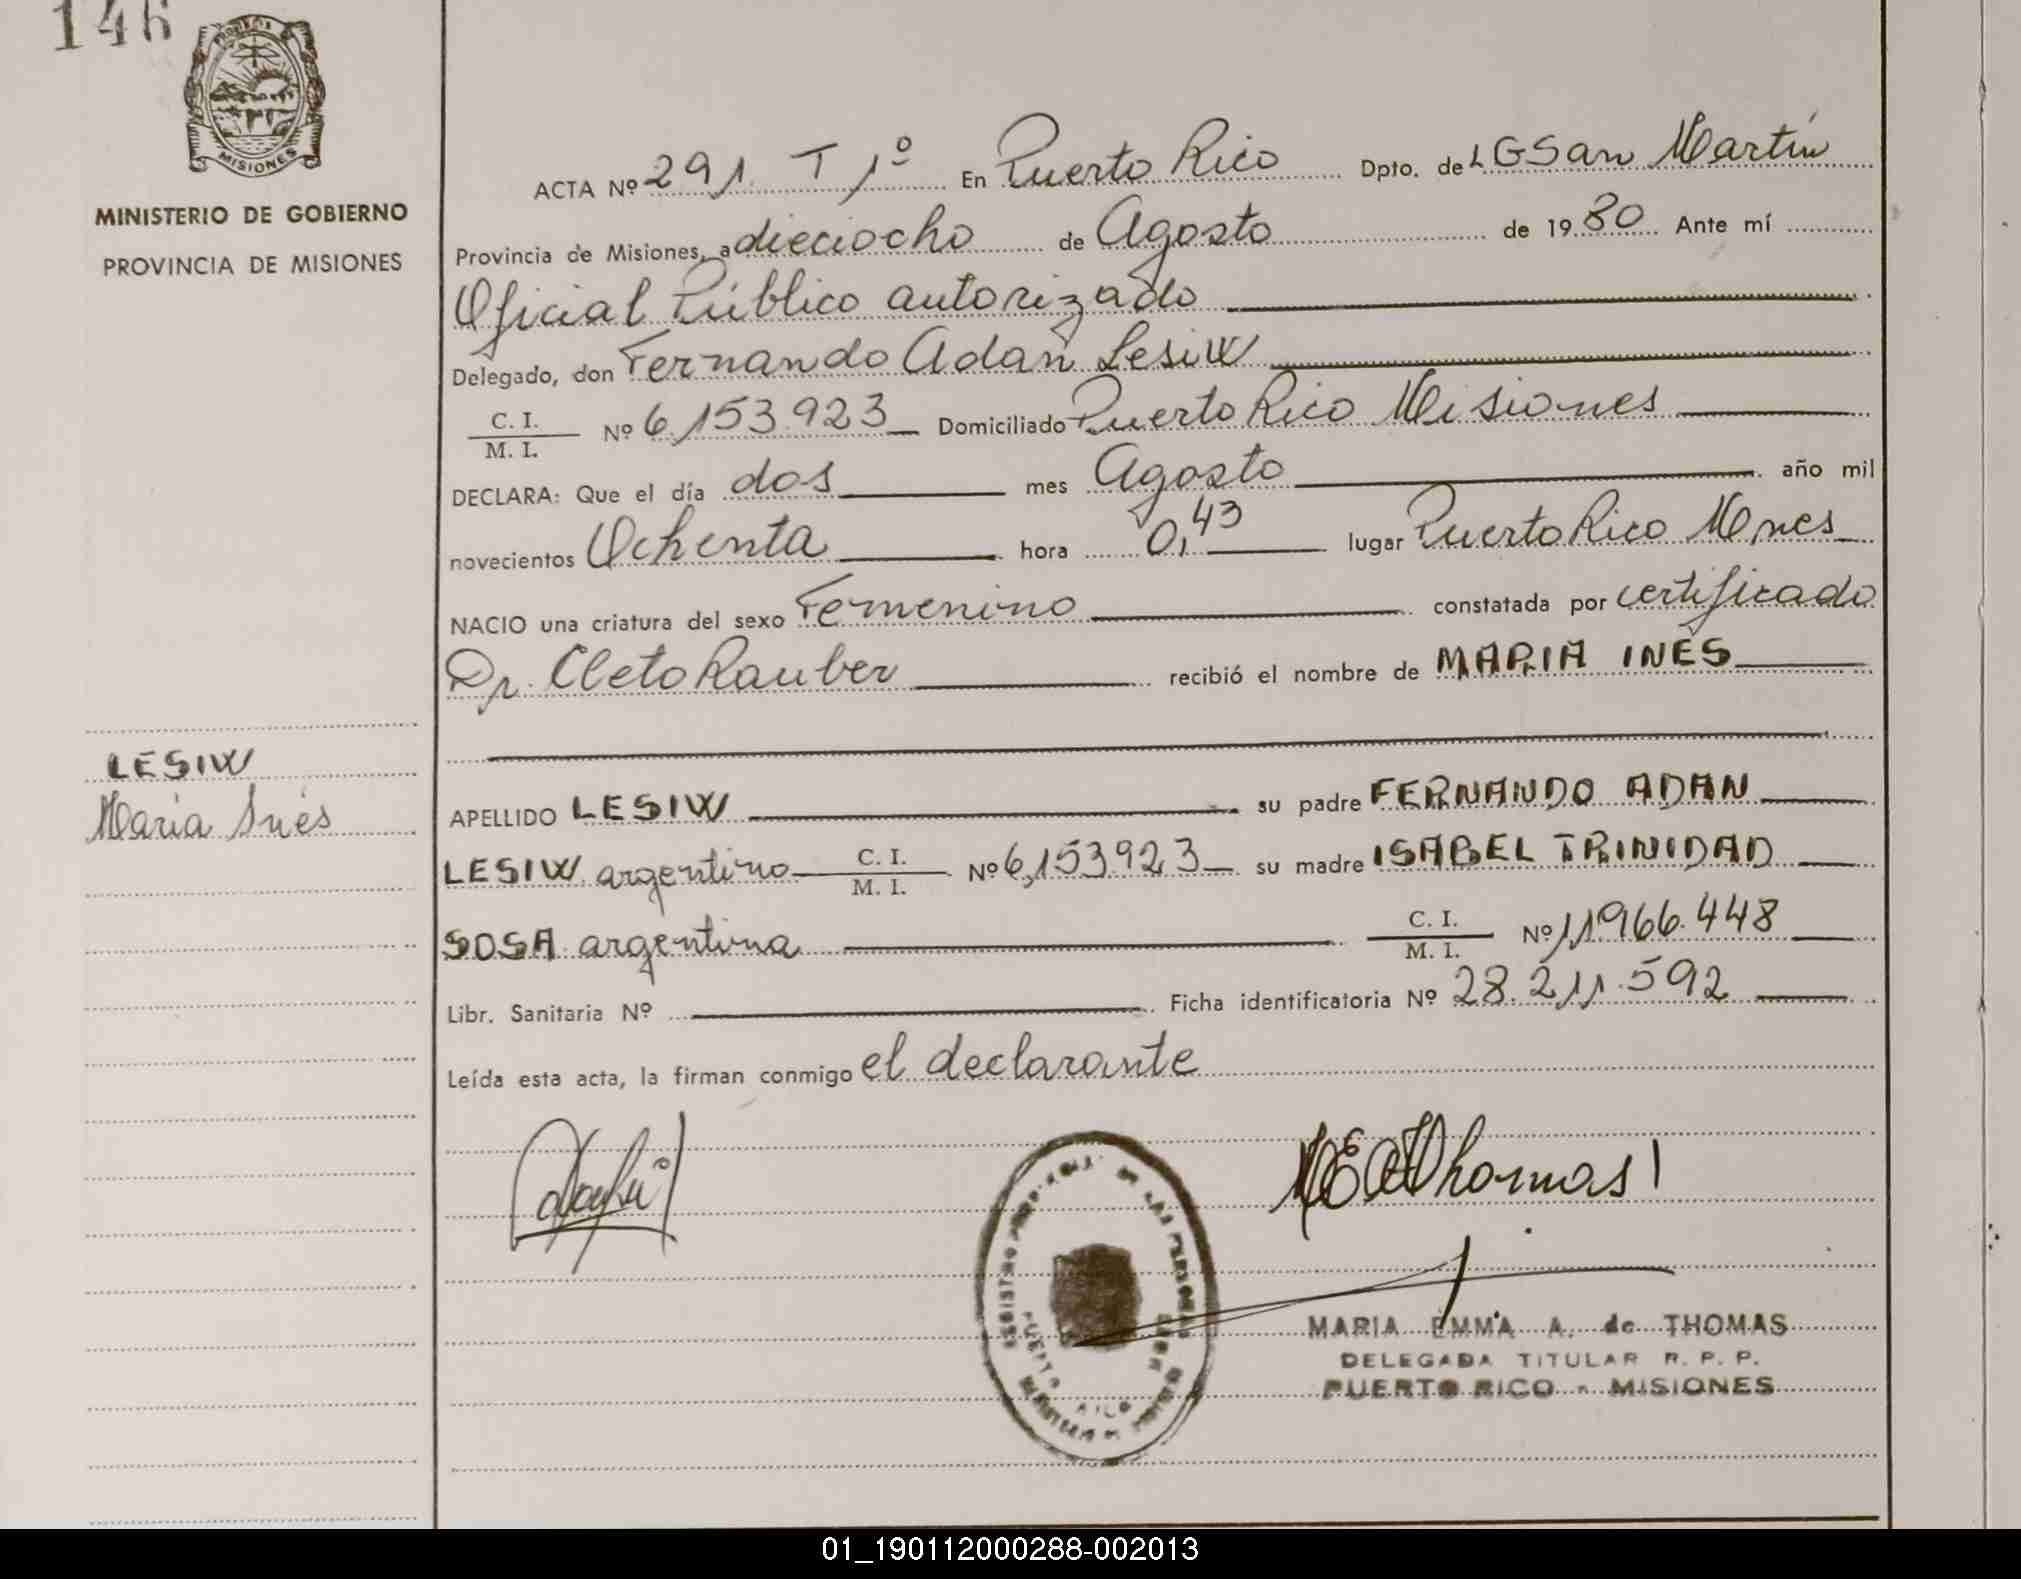 146
MISIONES
MINISTERIO DE GOBIERNO
PROVINCIA DE MISIONES
ACTA Nº 291 T 1º En Puerto Rico Dpto. de L G San Martín
Provincia de Misiones, a dieciocho de Agosto de 1980 Ante mí
Oficial Público autorizado
Delegado, don Fernando Adan Lesiw
C. I.
M. I. Nº 6.153.923 Domiciliado Puerto Rico Misiones
DECLARA: Que el día dos mes Agosto año mil
novecientos Ochenta hora 0,43 lugar Puerto Rico Mnes
NACIO una criatura del sexo Femenino constatada por certificado
Dr. Cleto Rauber recibió el nombre de MARIA INÉS
LESIW
Maria Inés
APELLIDO LESIW su padre FERNANDO ADAN
LESIW argentino C. I.
M. I. Nº 6,153923 su madre ISABEL TRINIDAD
SOSA argentina C. I.
M. I. Nº 11966.448
Libr. Sanitaria Nº Ficha identificatoria Nº 28.211.592
Leída esta acta, la firman conmigo el declarante
MEAThomas
REGISTRO DE LAS PERSONAS
PUERTO RICO
MARIA EMMA A. de THOMAS
DELEGADA TITULAR R. P. P.
PUERTO RICO - MISIONES
01_190112000288-002013